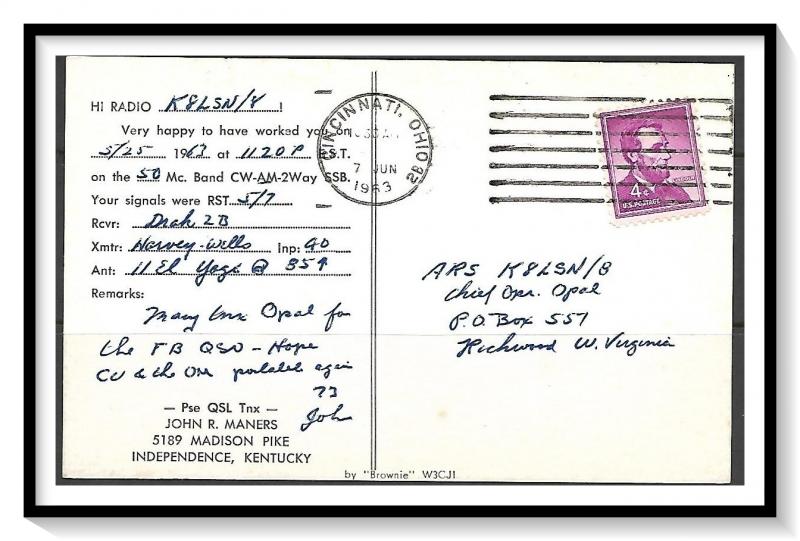 HI RADIO K8LSN/8 !
Very happy to have worked you on
5/25 1963 at 1120P E.S.T.
on the 50 Mc. Band CW-AM-2Way SSB.
Your signals were RST 5/7
Rcvr: Drak 2B
Xmtr: Harvey-Wells Inp: 90
Ant: 11 El Yagi @ 85ft
Remarks:
Many tnx Opal for
the FB QSO - Hope
CU & the OM portable again
73
John
— Pse QSL Tnx —
JOHN R. MANERS
5189 MADISON PIKE
INDEPENDENCE, KENTUCKY
by "Brownie" W3CJI
CINCINNATI, OHIO
7 JUN
1963
4¢
U.S. POSTAGE
ARS K8LSN/8
Chief Opr. Opal
P.O. Box 557
Richwood W. Virginia